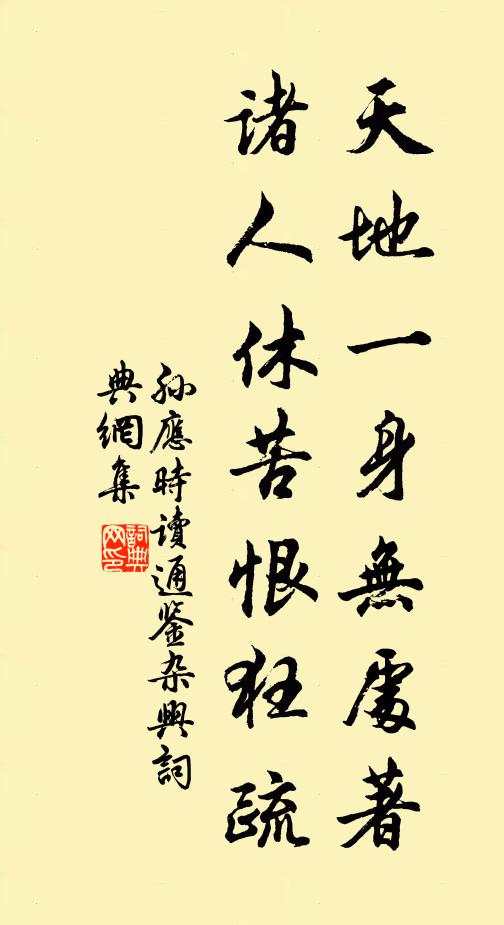 天地一身無處著
諸人休苦恨狂疏
孫應時讀通鉴杂興詞
典網集
詞典
网印